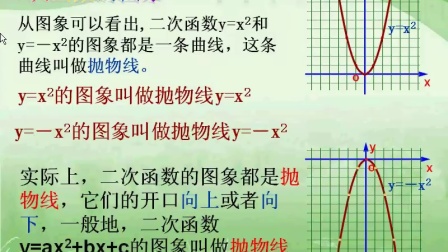 从图象可以看出,二次函数y=x²和
y=－x²的图象都是一条曲线，这条
曲线叫做抛物线。
y=x²的图象叫做抛物线y=x²
y=－x²的图象叫做抛物线y=－x²
实际上，二次函数的图象都是抛
物线，它们的开口向上或者向
下，一般地，二次函数
y=ax²+bx+c的图象叫做抛物线
y=x²
o
x
y
o
x
y=－x²